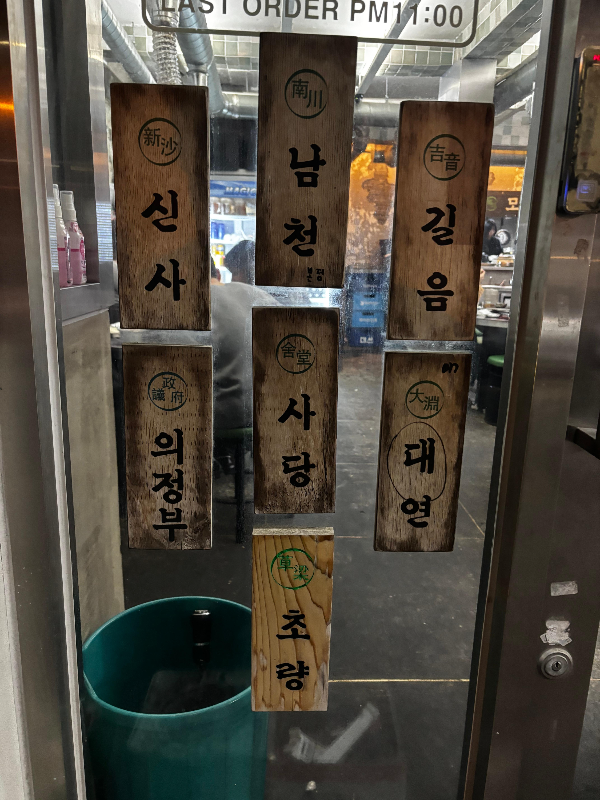 LAST ORDER PM11:00
南川
남천
본점
新沙
신사
吉音
길음
舍堂
사당
議政府
의정부
大淵
대연
草梁
초량
MAGIC
모